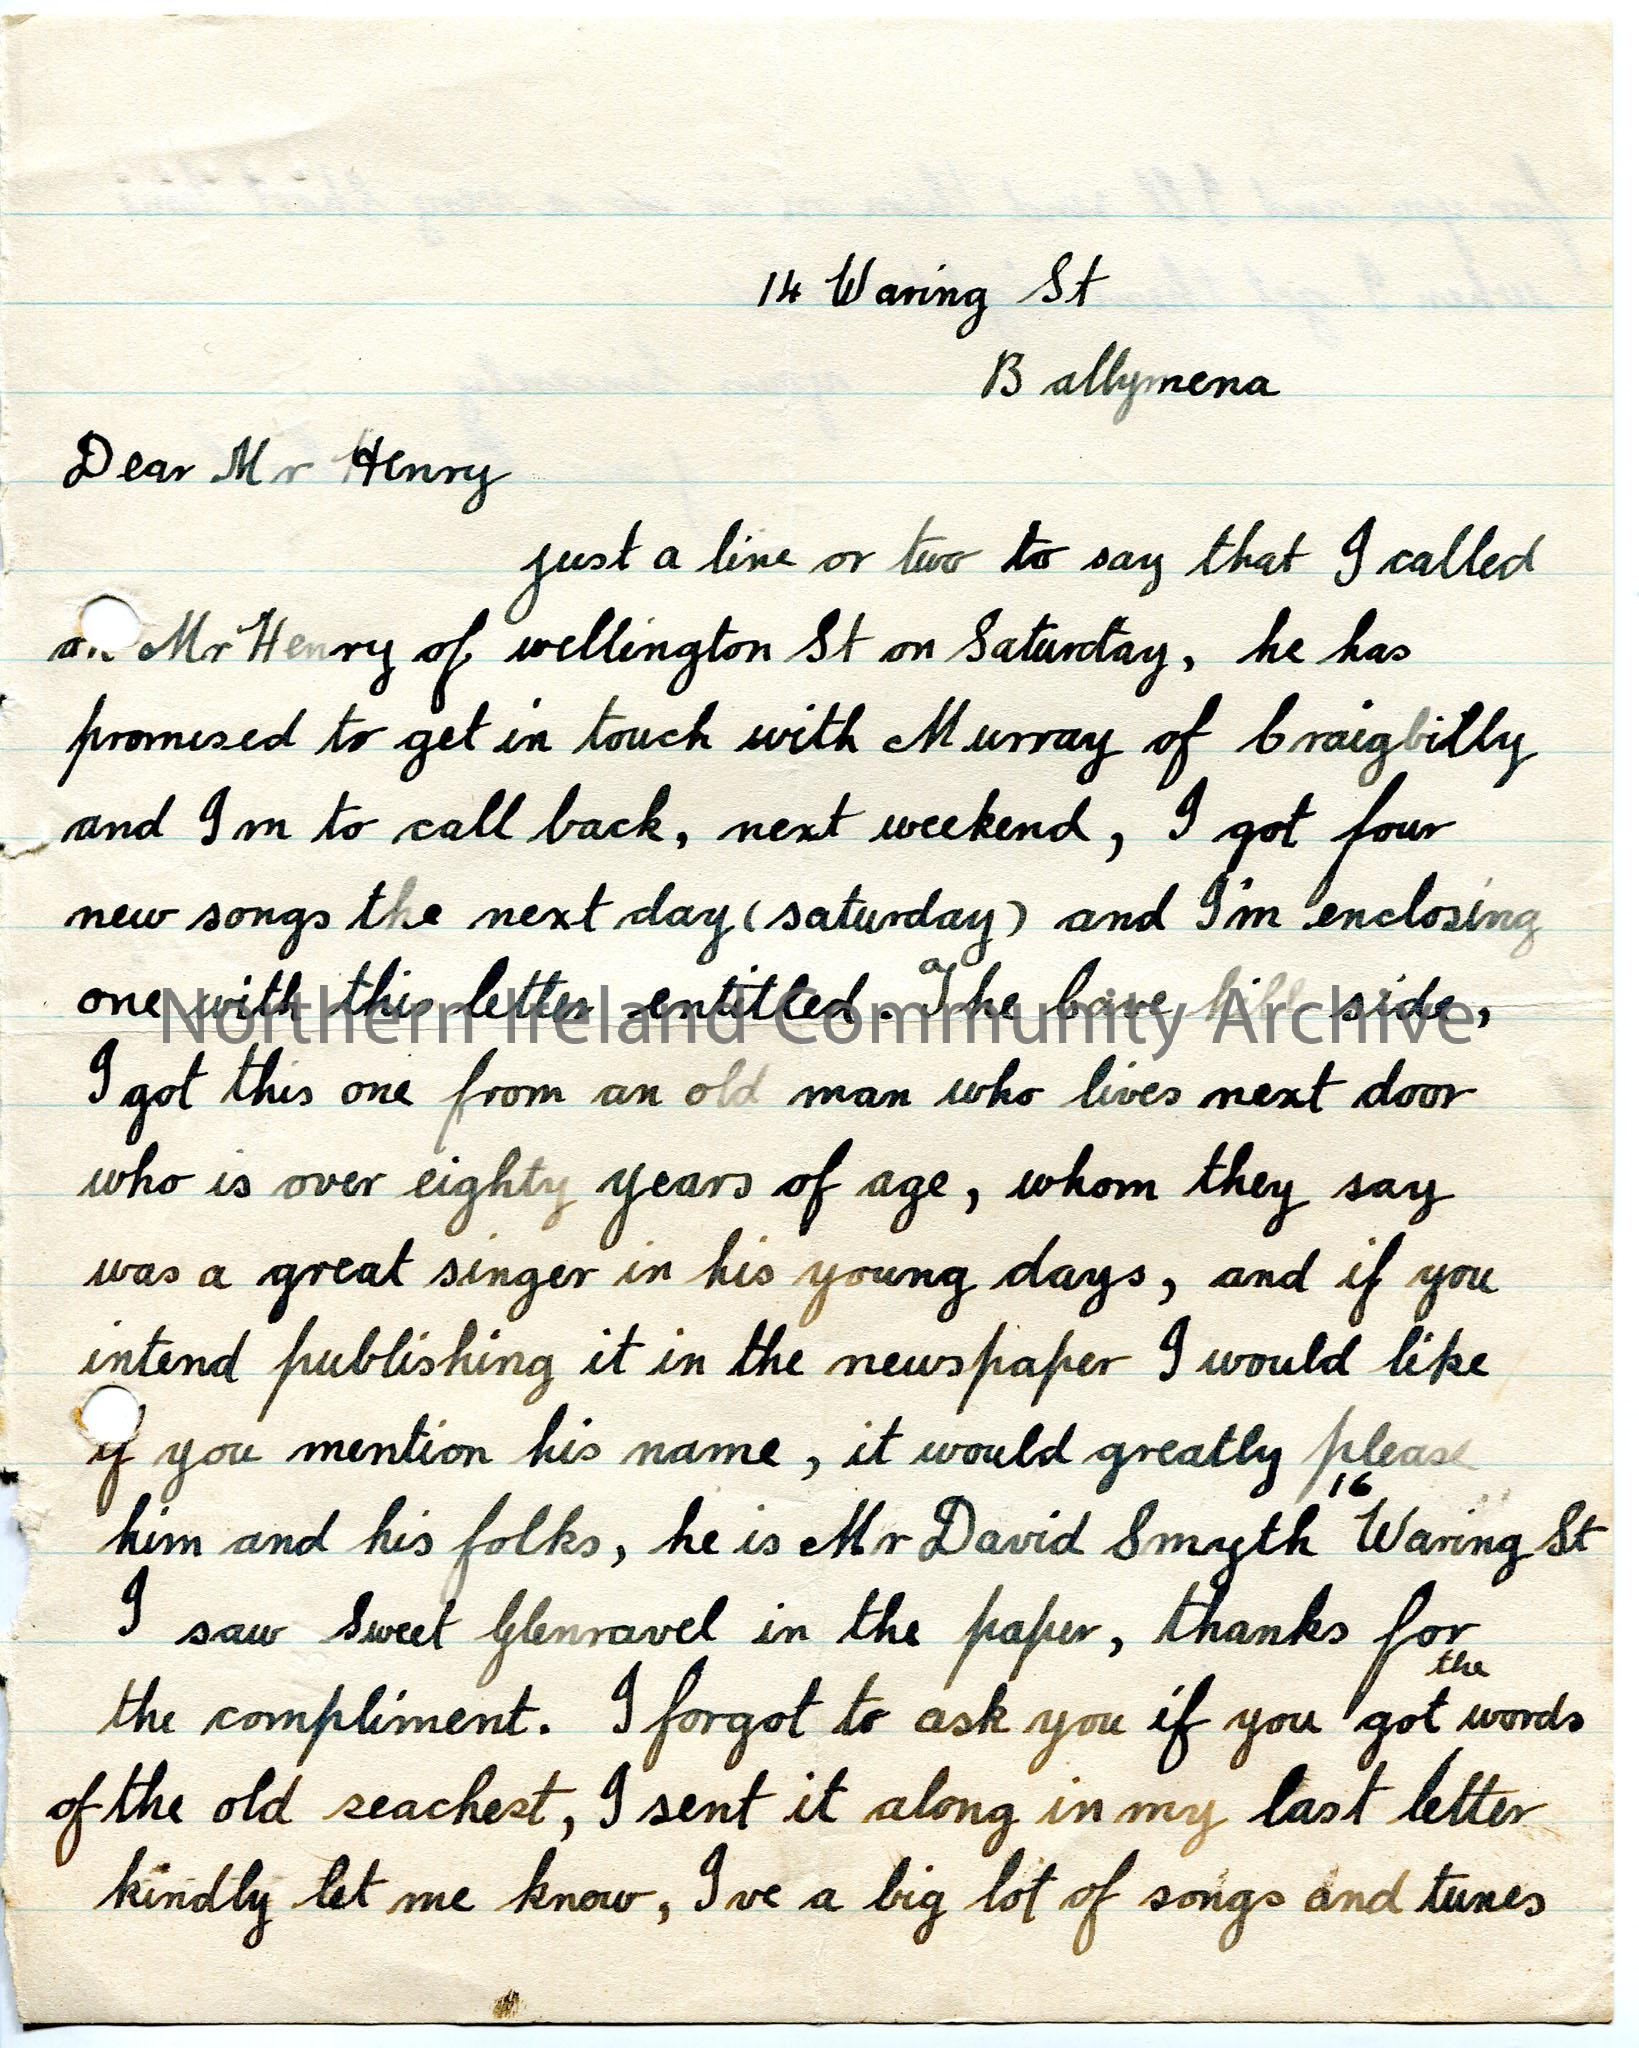 14 Waring St
Ballymena
Dear Mr Henry
just a line or two to say that I called
on Mr Henry of wellington St on Saturday, he has
promised to get in touch with Murray of Craigbilly
and Im to call back, next weekend, I got four
new songs the next day (saturday) and I'm enclosing
one with this letter entitled. The bare hill side,
Northern Ireland Community Archive
I got this one from an old man who lives next door
who is over eighty years of age, whom they say
was a great singer in his young days, and if you
intend publishing it in the newspaper I would like
if you mention his name, it would greatly please
him and his folks, he is Mr David Smyth 16 Waring St
I saw Sweet Glenravel in the paper, thanks for
the compliment. I forgot to ask you if you got the words
of the old seachest, I sent it along in my last letter
kindly let me know, I ve a big lot of songs and tunes